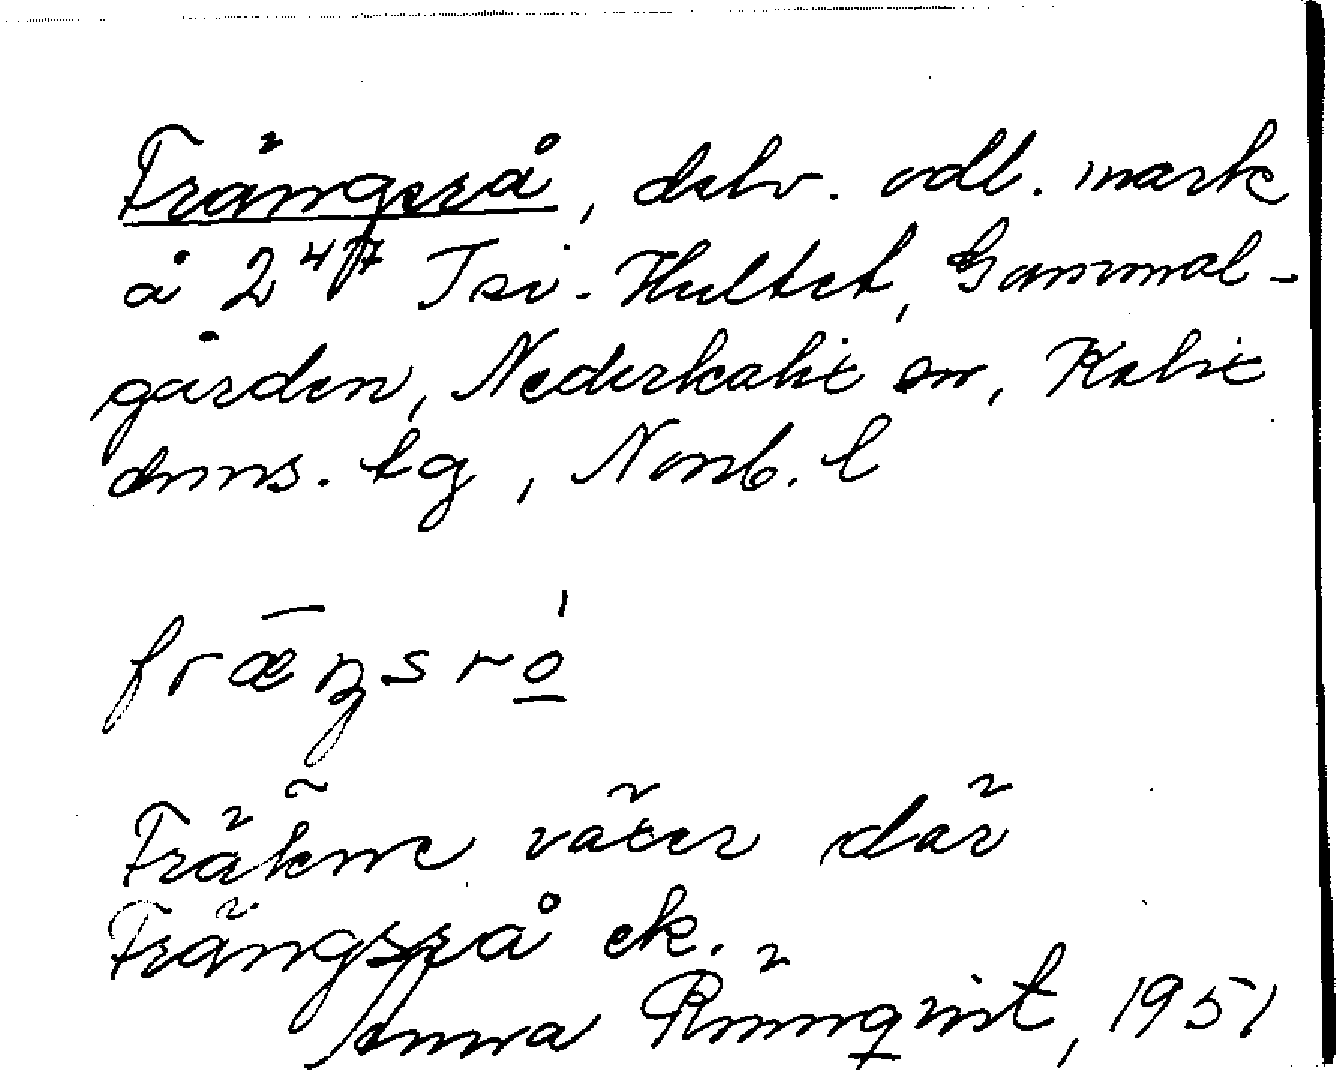 Frängsrå, delv. odl. mark
å 2⁴¹⁷ Isi. Hultet, Gammal-
gården, Nederkalix sn, Kalix
dmns. tg, Norrb. l
fræŋsró̱
Fräkne växer där
Frängsrå ek.
Anna Rönnqvist, 1951